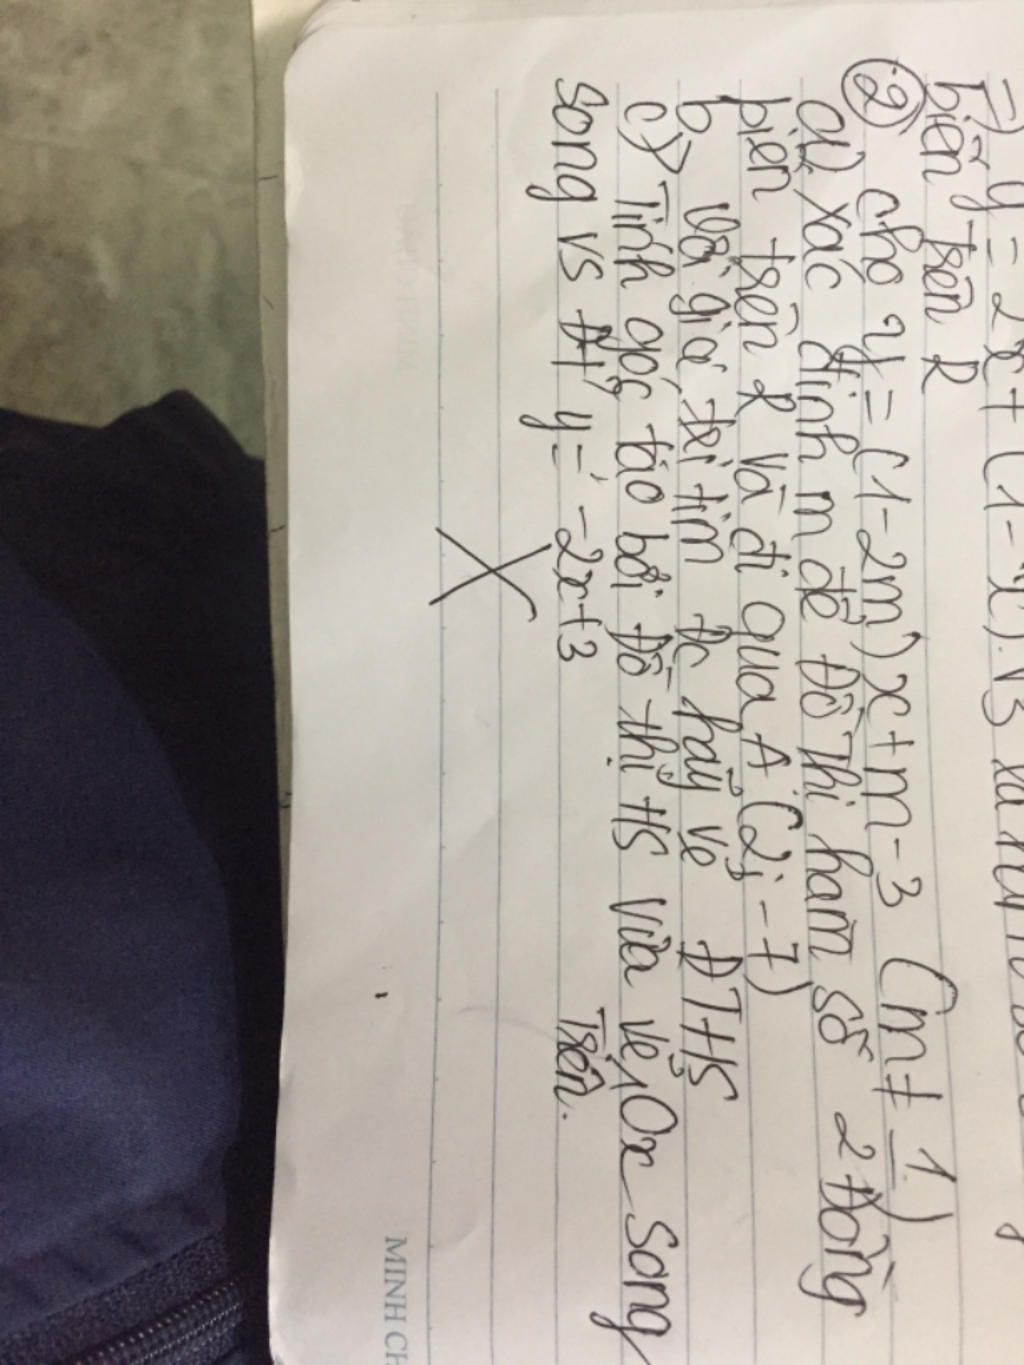 y = 2x + (1-x).√3
biến trên R
② cho y = (1-2m)x+m-3 (m ≠ 1/2)
a) xác định m để Đồ Thị hàm số Đồng
biến trên R và đi qua A (2; -7)
b) với giá trị tìm Đc hãy vẽ ĐTHS
c) Tính góc tạo bởi Đồ thị HS vừa vẽ, Ox song
song vs ĐT y = -2x+3 Trên.
MINH CH